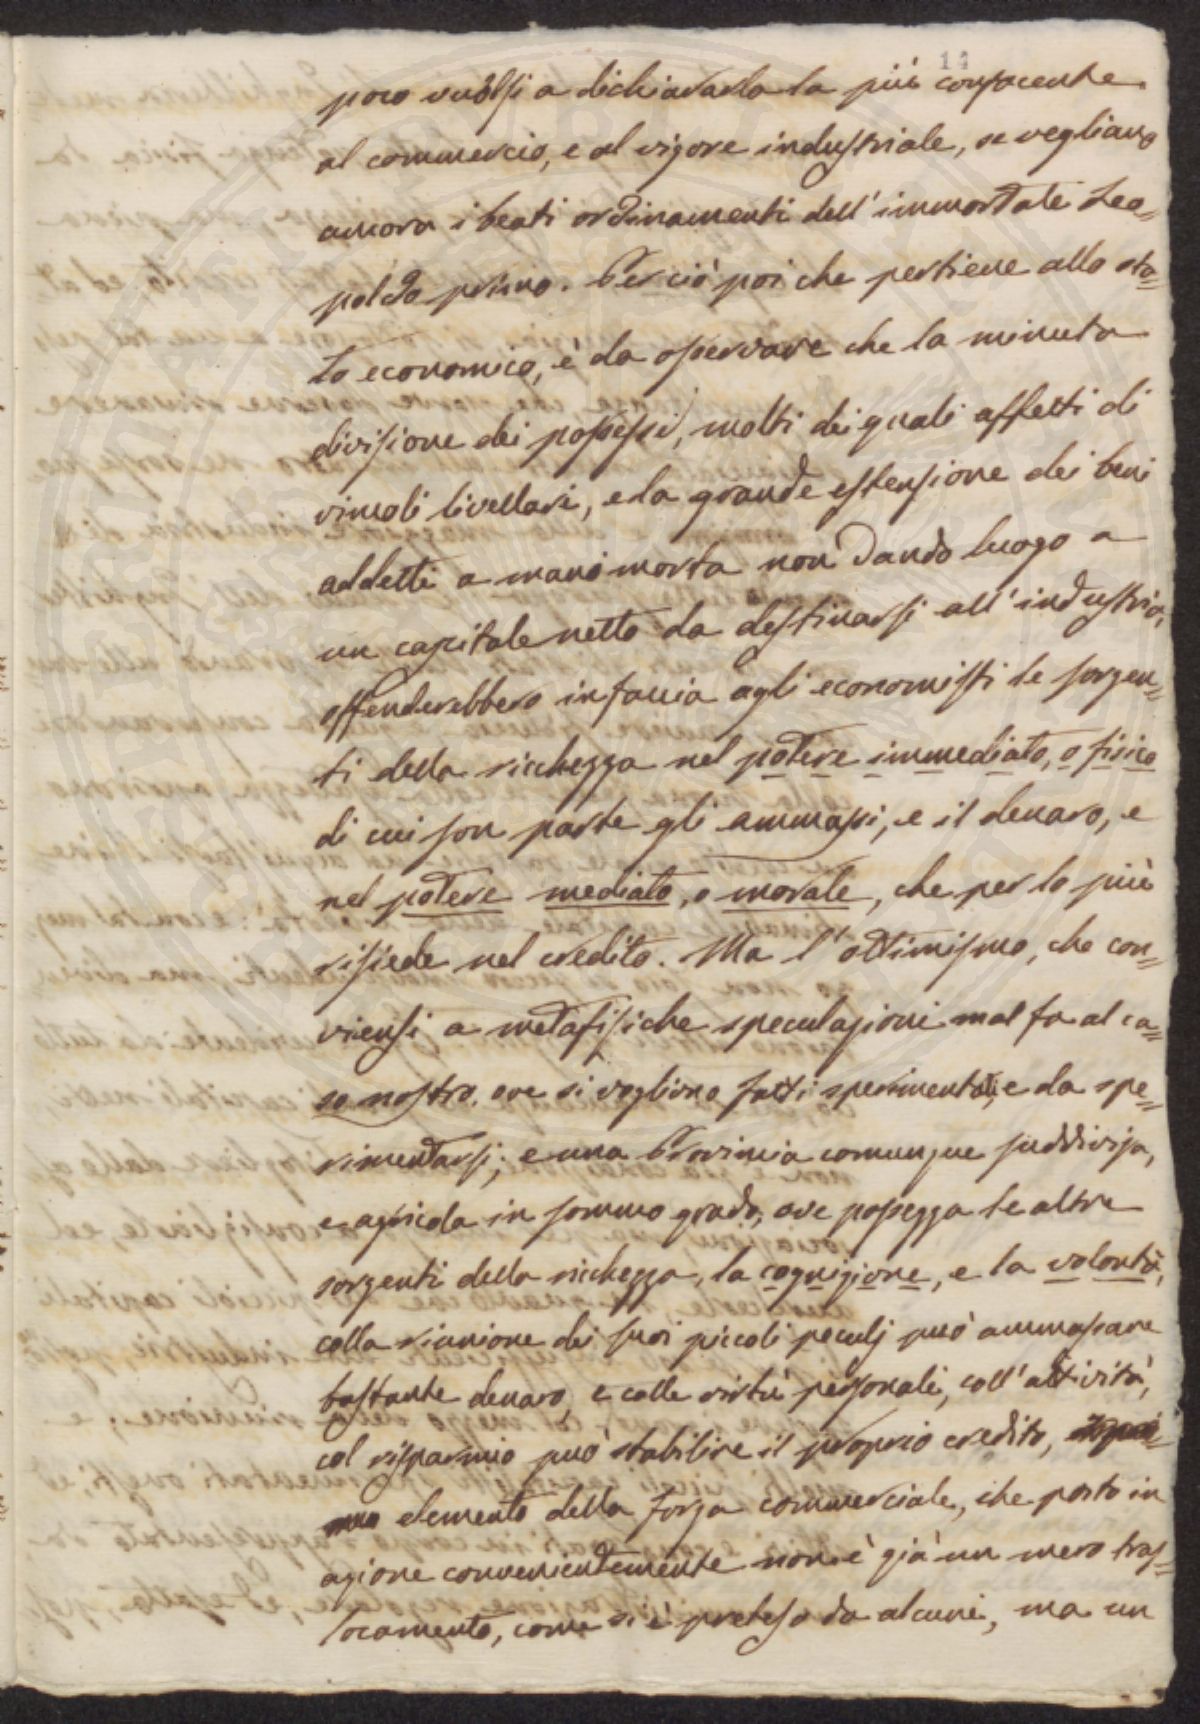 14
poco vuolsi a dichiararla la più confacente
al commercio, e al vigore industriale, se vegliano
ancora i beati ordinamenti dell' immortale Leo=
poldo primo. Per ciò poi che pertiene allo sta=
to economico, è da osservare che la minuta
divisione dei possessi, molti dei quali affetti di
vincoli livellari, e la grande estensione dei beni
addetti a mani morta non dando luogo a
un capitale netto da destinarsi all' industria,
offenderebbero in faccia agli economisti le sorgen=
ti della ricchezza nel potere immediato, o fisico
di cui son parte gli ammassi, e il denaro, e
nel potere mediato, o morale, che per lo più
risiede nel credito. Ma l' ottimismo, che con=
viensi a metafisiche speculazioni mal fa al ca=
so nostro, ove si vogliono fatti sperimentati, e da spe=
rimentarsi; e una Provincia comunque suddivisa,
e agricola in sommo grado, ove possegga le altre
sorgenti della ricchezza, la cognizione, e la volontà,
colla riunione dei suoi piccoli peculj può ammassare
bastante denaro, e colle virtù personali, coll' attività,
col risparmio può stabilire il proprio credito,
elemento della forza commerciale, che posto in
azione convenientemente non è già un mero tras=
locamento, come si è preteso da alcuni, ma un